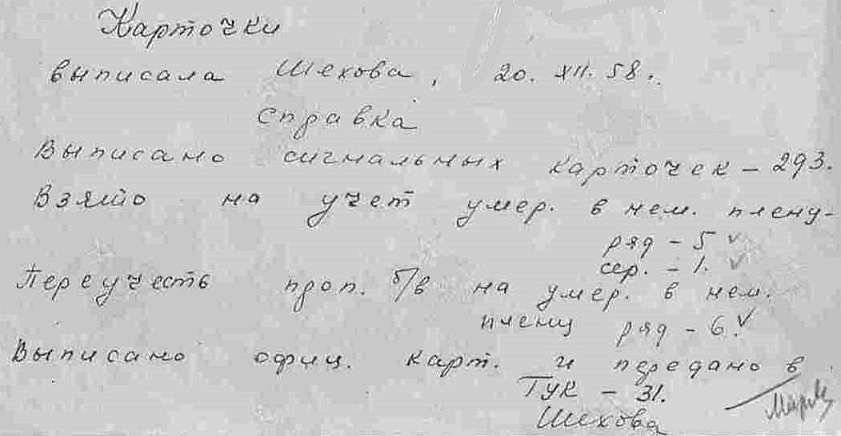 Карточки
выписала Шехова, 20. XII. 58.
Справка
Выписано сигнальных карточек – 293.
Взято на учет умер. в нем. плену –
ряд – 5 ✓
сер. – 1. ✓
Переучесть проп. б/в на умер. в нем.
ряд – 6. ✓
Выписано офиц. карт. и передано в
ГУК – 31.
Шехова